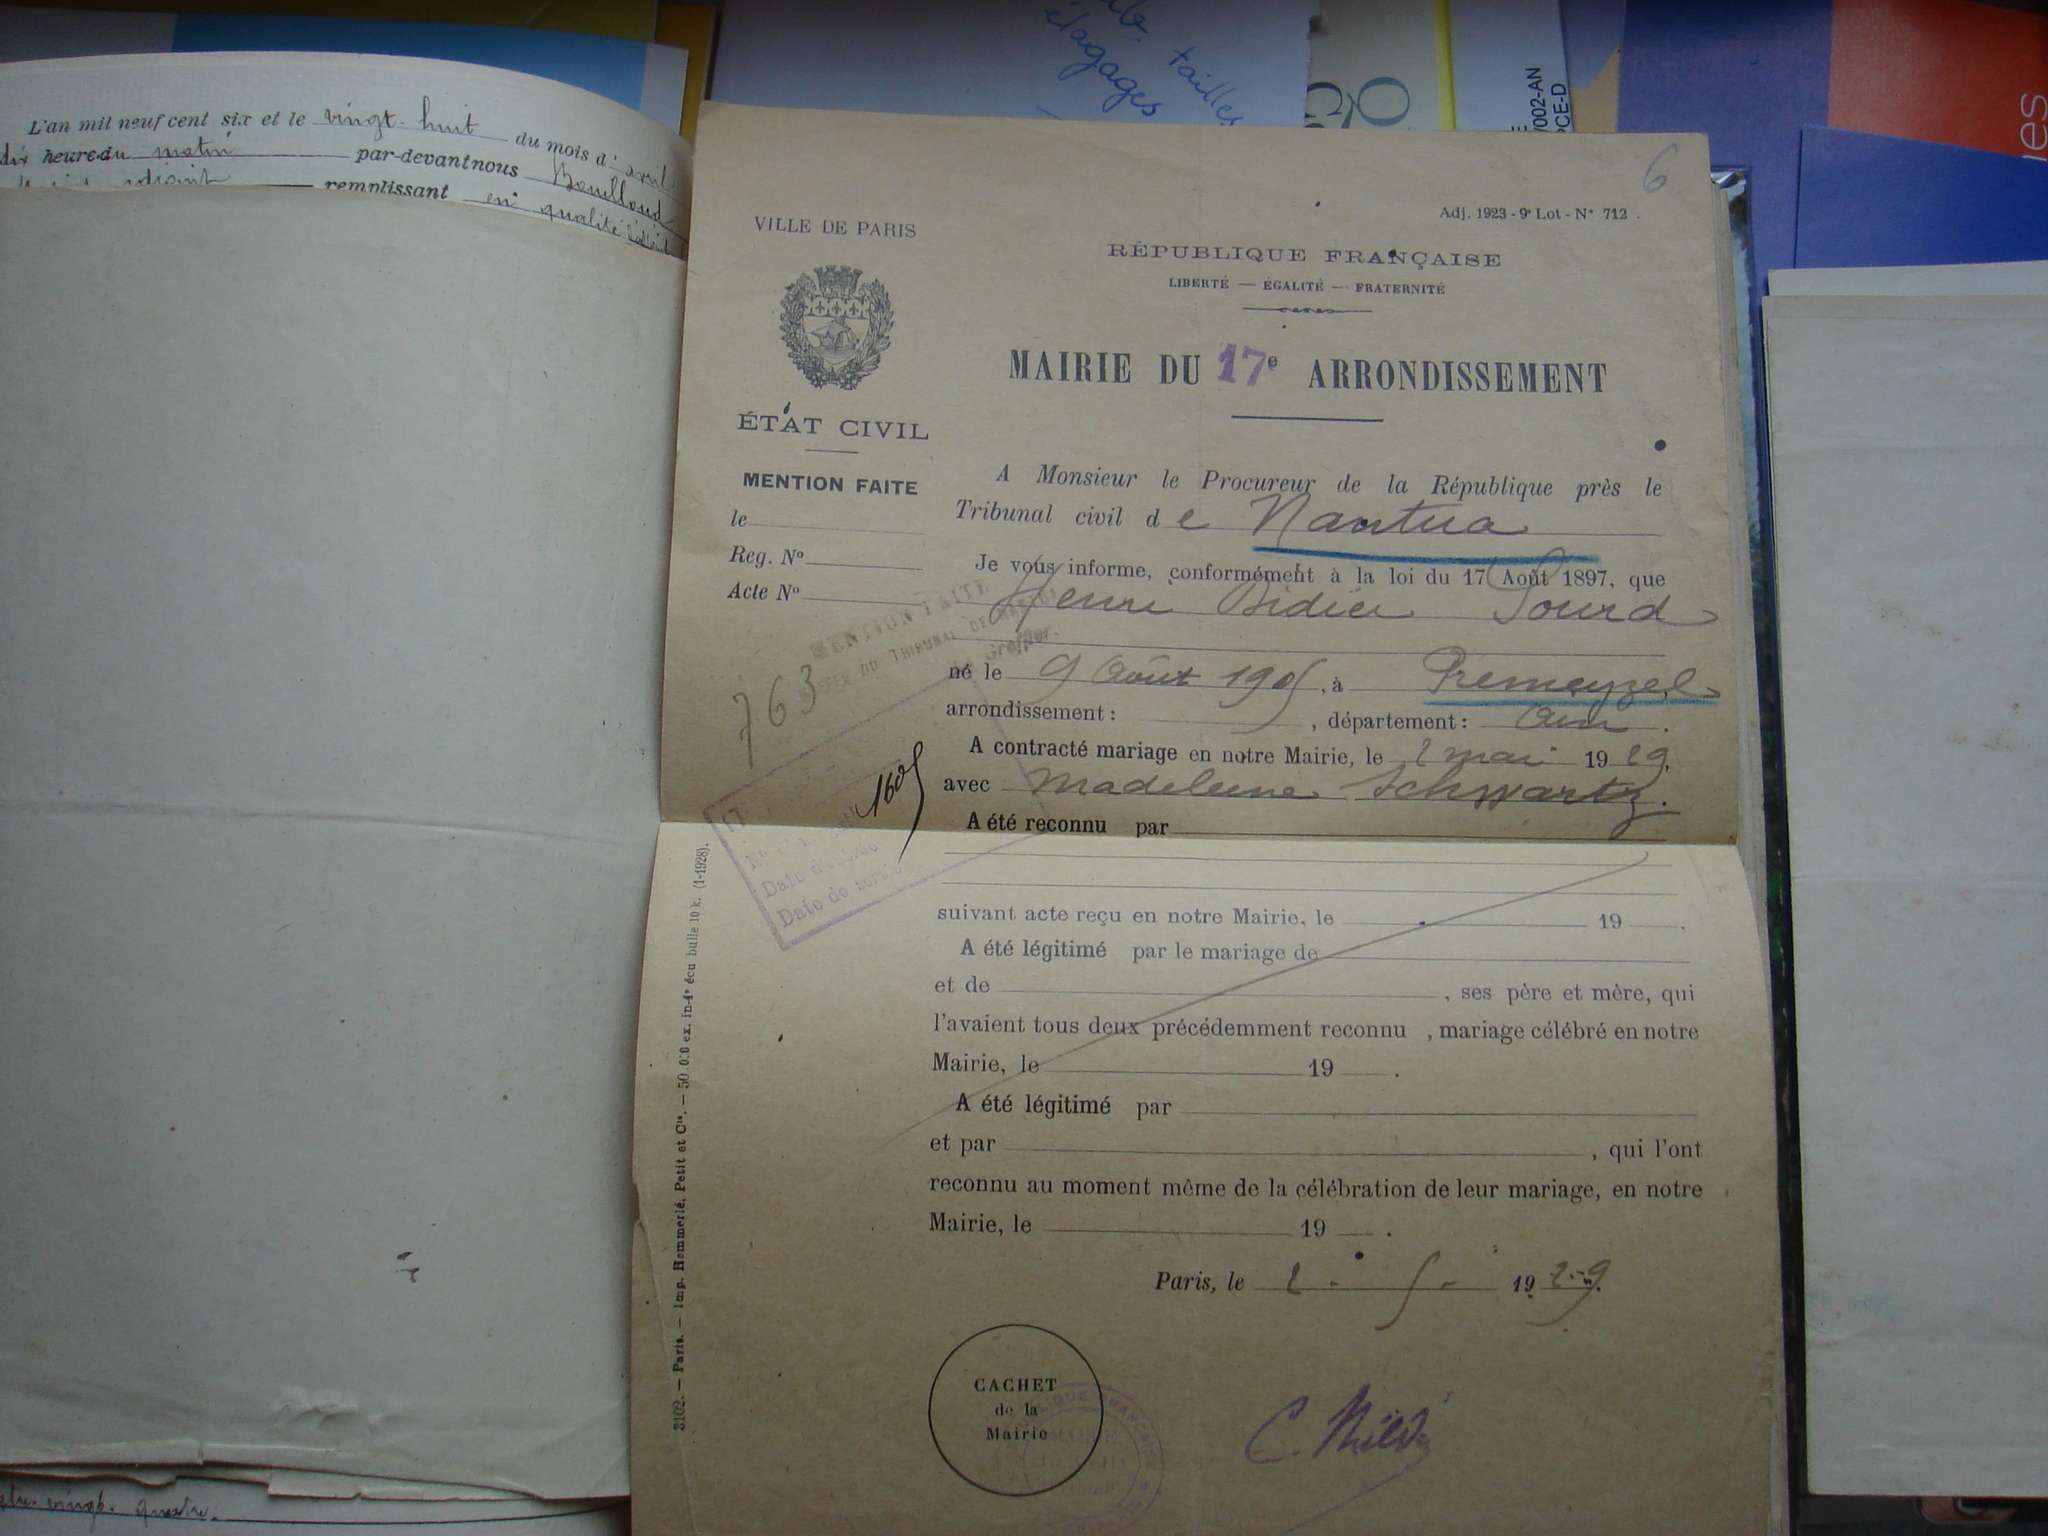 L'an mil neuf cent six et le vingt-huit du mois d'avril
dix heure du matin par-devant nous Bouilloud
adjoint remplissant en qualité
tailles
élagages
/002-AN
PCE-D
6
Adj. 1923 - 9e Lot - N° 712.
VILLE DE PARIS
RÉPUBLIQUE FRANÇAISE
LIBERTÉ — ÉGALITÉ — FRATERNITÉ
MAIRIE DU 17e ARRONDISSEMENT
ÉTAT CIVIL
MENTION FAITE
le
Reg. N°
Acte N°
A Monsieur le Procureur de la République près le
Tribunal civil de Nantua
Je vous informe, conformément à la loi du 17 Août 1897, que
Henri Didier Sourd
MENTION FAITE
DU TRIBUNAL DE
Greffier.
763
né le 9 Août 1905, à Premeyzel
arrondissement : , département : Ain.
A contracté mariage en notre Mairie, le 2 mai 1929,
avec Madeleine Schwartz.
1605
Date de
Date de sortie
A été reconnu par
suivant acte reçu en notre Mairie, le 19 .
A été légitimé par le mariage de
et de , ses père et mère, qui
l'avaient tous deux précédemment reconnu , mariage célébré en notre
Mairie, le 19 .
A été légitimé par
et par , qui l'ont
reconnu au moment même de la célébration de leur mariage, en notre
Mairie, le 19 .
Paris, le 2 - 5 - 1929.
CACHET
de la
Mairie
3102. — Paris. — Imp. Hemmerlé, Petit et Cie. — 50.000 ex. in-4° écu bulle 10 k. (1-1928).
vingt. quatre.